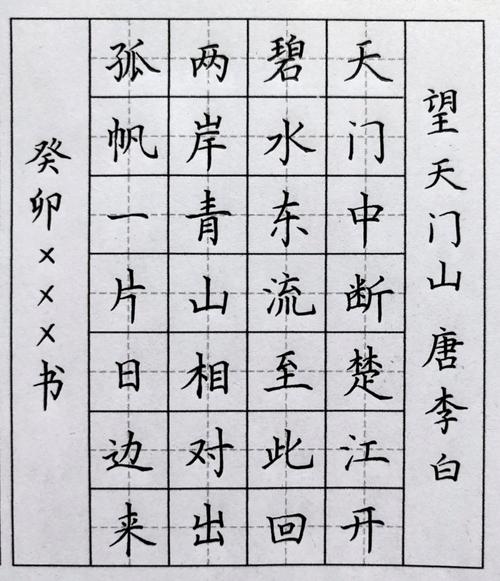 望天门山 唐 李白
天门中断楚江开
碧水东流至此回
两岸青山相对出
孤帆一片日边来
癸卯×××书